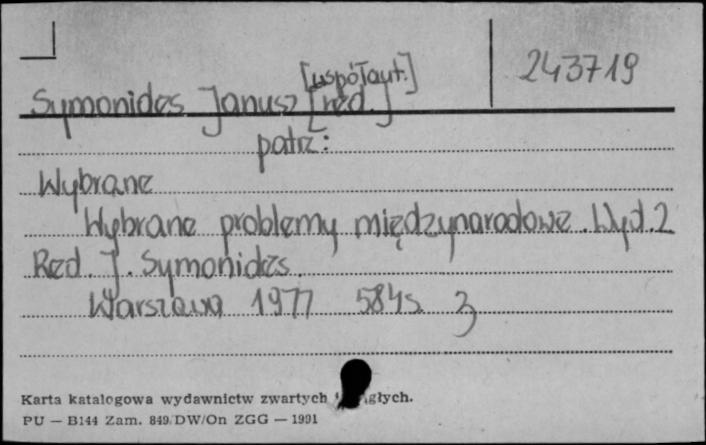 [współaut.]
243719
Symonides Janusz [red.]
patrz:
Wybrane
Wybrane problemy międzynarodowe. Wyd. 2
Red. J. Symonides.
Warszawa 1977 584s.
Karta katalogowa wydawnictw zwartych
PU — B144 Zam. 849/DW/On ZGG — 1991